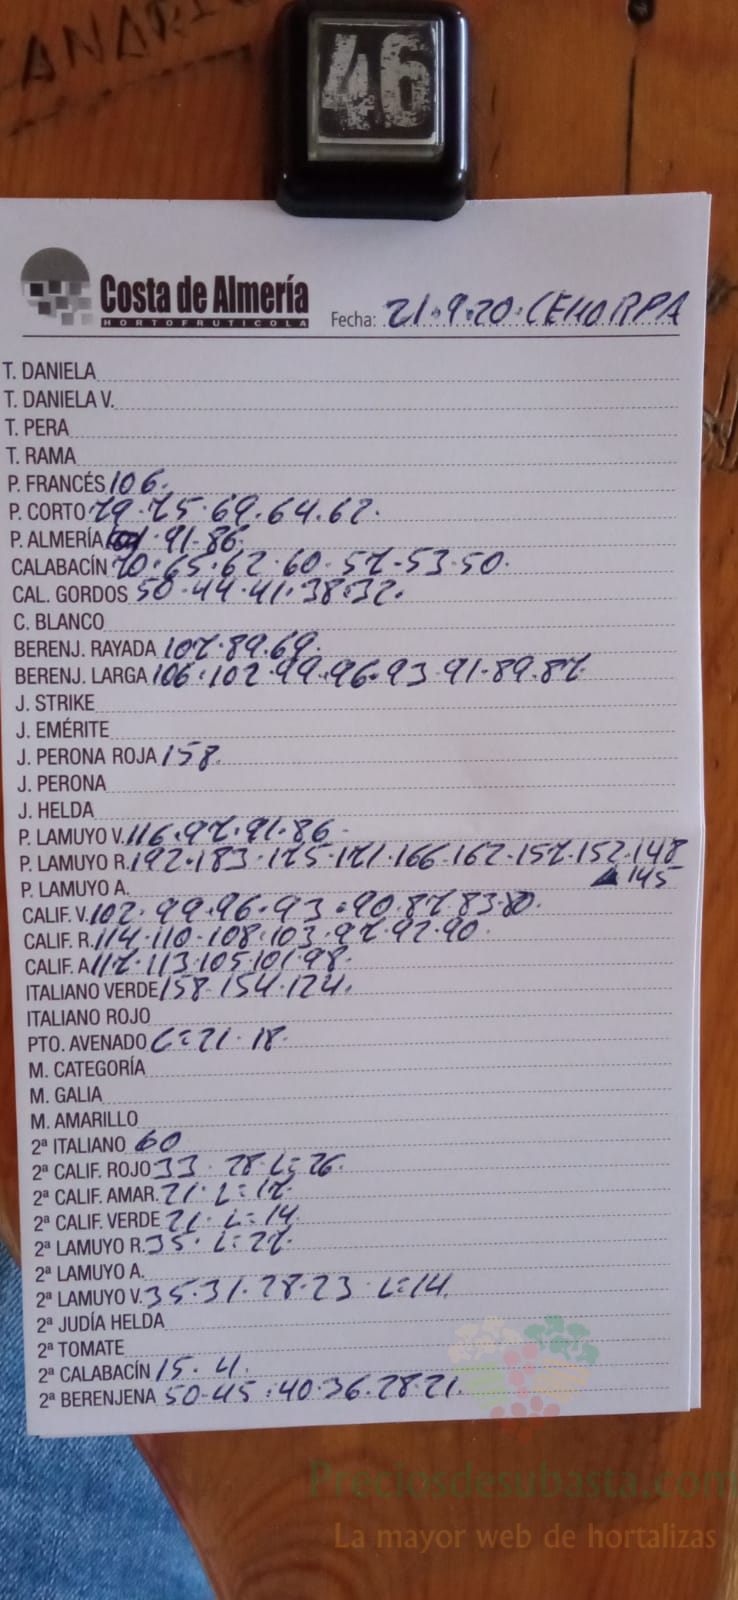 CANARIO
46
Costa de Almería
HORTOFRUTICOLA
Fecha: 21.9.20. CEHORPA
T. DANIELA
T. DANIELA V.
T. PERA
T. RAMA
P. FRANCÉS 106.
P. CORTO 79.75.69.64.62.
P. ALMERÍA .91.86.
CALABACÍN 70.65.62.60.57.53.50.
CAL. GORDOS 50.44.41.38.32.
C. BLANCO
BERENJ. RAYADA 107.89.69.
BERENJ. LARGA 106.102.99.96.93.91.89.87
J. STRIKE
J. EMÉRITE
J. PERONA ROJA 158.
J. PERONA
J. HELDA
P. LAMUYO V. 116.97.91.86.
P. LAMUYO R. 192.183.175.171.166.162.157.152.148
P. LAMUYO A. 145
CALIF. V. 102.99.96.93.90.87.83.80.
CALIF. R. 114.110.108.103.97.92.90.
CALIF. A 117.113.105.101.98.
ITALIANO VERDE 158.154.124.
ITALIANO ROJO
PTO. AVENADO C=21.18.
M. CATEGORÍA
M. GALIA
M. AMARILLO
2ª ITALIANO 60
2ª CALIF. ROJO 33.28.L=26.
2ª CALIF. AMAR. 21.L=17.
2ª CALIF. VERDE 21.L=14.
2ª LAMUYO R. 35.L=27.
2ª LAMUYO A.
2ª LAMUYO V. 35.31.28.23.L=14.
2ª JUDÍA HELDA
2ª TOMATE
2ª CALABACÍN 15.4.
2ª BERENJENA 50.45.40.36.28.21.
Preciosdesubasta.com
La mayor web de hortalizas